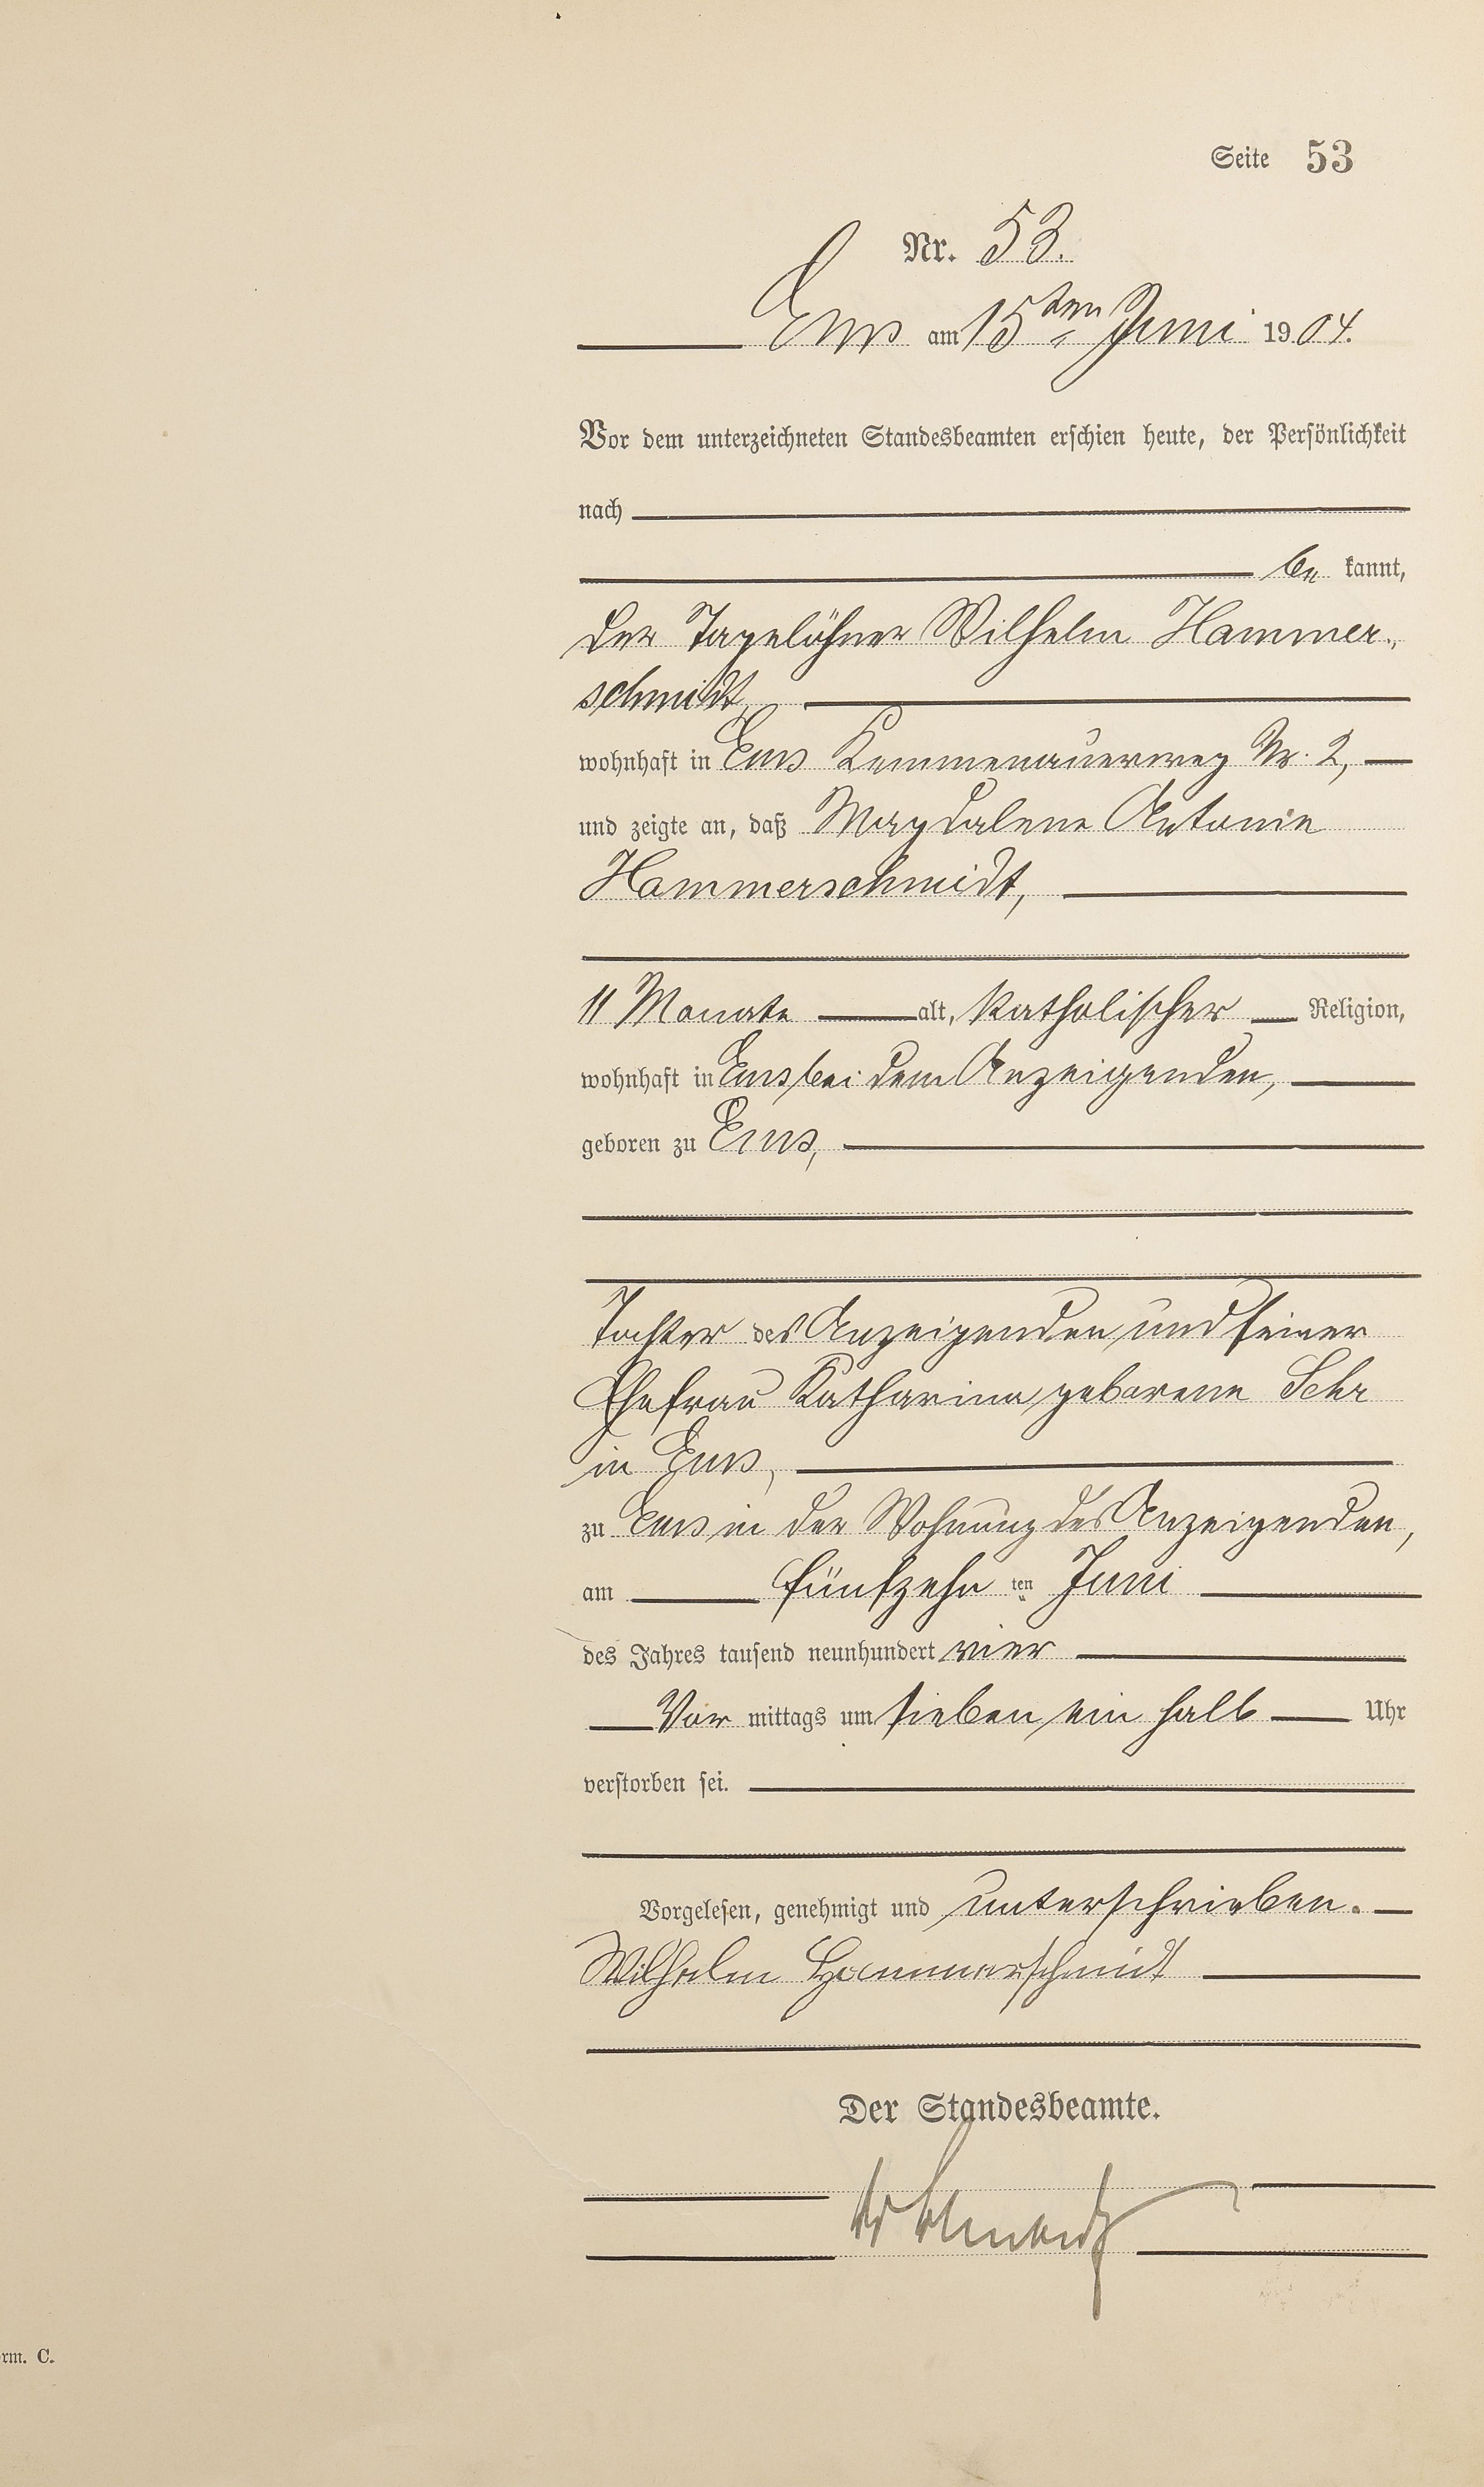 Seite 53
Nr. 53.
Ems am 15ten Juni 1904.
Vor dem unterzeichneten Standesbeamten erschien heute, der Persönlichkeit
nach
be kannt,
der Tagelöhner Wilhelm Hammer-
schmidt,
wohnhaft in Ems Kemmenauerweg Nr. 2,
und zeigte an, daß Magdalene Antonie
Hammerschmidt,
11 Monate alt, katholischer Religion,
wohnhaft in Ems bei dem Anzeigenden,
geboren zu Ems,
Tochter des Anzeigenden und seiner
Ehefrau Katharina geborene
in Ems,
zu Ems in der Wohnung des Anzeigenden,
am fünfzehn ten Juni
des Jahres tausend neunhundert vier
Vor mittags um sieben ein halb Uhr
verstorben sei.
Vorgelesen, genehmigt und unterschrieben.
Wilhelm Hammerschmidt
Der Standesbeamte.
rm. C.